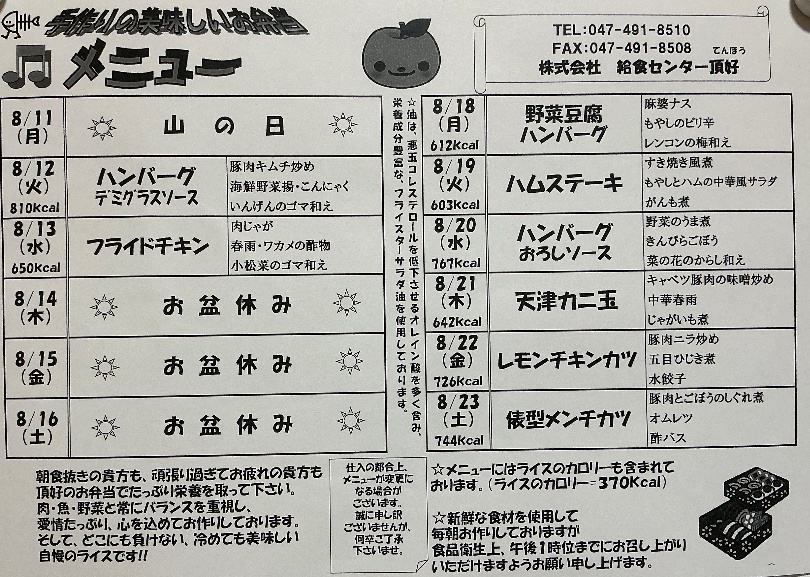 手作りの美味しいお弁当
メニュー
TEL:047-491-8510
FAX:047-491-8508
てんほう
株式会社 給食センター頂好
8/11
(月)
山の日
8/12
(火)
810kcal
ハンバーグ
デミグラスソース
豚肉キムチ炒め
海鮮野菜揚・こんにゃく
いんげんのゴマ和え
8/13
(水)
650kcal
フライドチキン
肉じゃが
春雨・ワカメの酢物
小松菜のゴマ和え
8/14
(木)
お盆休み
8/15
(金)
お盆休み
8/16
(土)
お盆休み
☆油は、悪玉コレステロールを低下させるオレイン酸を多く含み、
栄養成分豊富な、フライスターサラダ油を使用しております。
8/18
(月)
612kcal
野菜豆腐
ハンバーグ
麻婆ナス
もやしのピリ辛
レンコンの梅和え
8/19
(火)
603kcal
ハムステーキ
すき焼き風煮
もやしとハムの中華風サラダ
がんも煮
8/20
(水)
767kcal
ハンバーグ
おろしソース
野菜のうま煮
きんぴらごぼう
菜の花のからし和え
8/21
(木)
642kcal
天津カニ玉
キャベツ豚肉の味噌炒め
中華春雨
じゃがいも煮
8/22
(金)
726kcal
レモンチキンカツ
豚肉ニラ炒め
五目ひじき煮
水餃子
8/23
(土)
744kcal
俵型メンチカツ
豚肉とごぼうのしぐれ煮
オムレツ
酢バス
朝食抜きの貴方も、頑張り過ぎてお疲れの貴方も
頂好のお弁当でたっぷり栄養を取って下さい。
肉・魚・野菜と常にバランスを重視し、
愛情たっぷり、心を込めてお作りしております。
そして、どこにも負けない、冷めても美味しい
自慢のライスです!!
仕入の都合上、
メニューが変更に
なる場合が
ございます。
誠に申し訳
ございませんが、
何卒ご了承
下さいませ。
☆メニューにはライスのカロリーも含まれて
おります。(ライスのカロリー=370Kcal)
☆新鮮な食材を使用して
毎朝お作りしておりますが
食品衛生上、午後1時位までにお召し上がり
いただけますようお願い申し上げます。